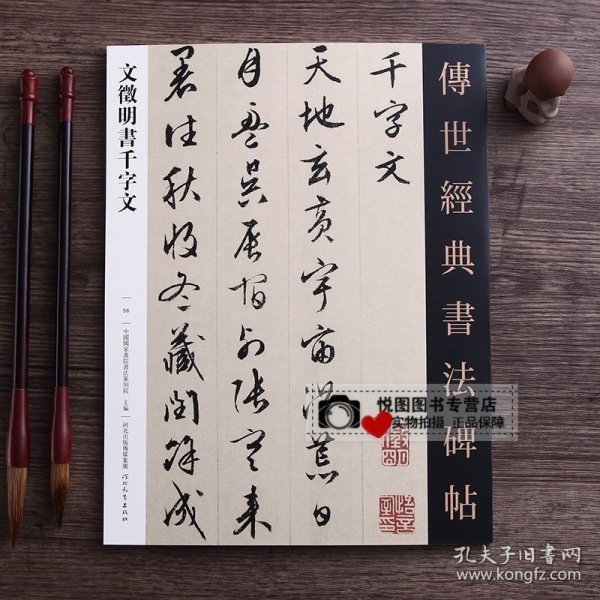 傳世經典書法碑帖
千字文
天地玄黄宇宙洪荒日
月盈昃辰宿列張寒來
暑往秋收冬藏閏餘成
文徵明書千字文
56
中國國家畫院書法篆刻院 主編
河北出版傳媒集團 河北教育出版社
悦图图书专营店
实物拍摄 正品保障
孔夫子旧书网
www.kongfz.com